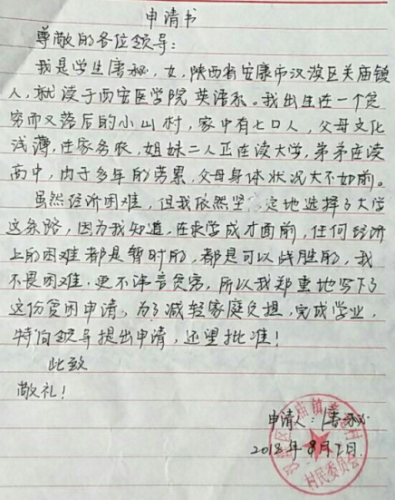 申请书
尊敬的各位领导:
我是学生唐秘,女,陕西省安康市汉滨区关庙镇
人,就读于西安医学院英语系。我出生在一个贫
穷而又落后的小山村,家中有七口人,父母文化
浅薄,在家务农,姐妹二人正在读大学,弟弟在读
高中,由于多年的劳累,父母身体状况大不如前。
虽然经济困难,但我依然坚定地选择了大学
这条路,因为我知道,在求学成才面前,任何经济
上的困难都是暂时的,都是可以战胜的,我
不畏困难,更不讳言贫穷,所以我郑重地写下了
这份贫困申请,为了减轻家庭负担,完成学业,
特向领导提出申请,还望批准!
此致
敬礼!
申请人:唐秘
2018年8月 日.
村民委员会